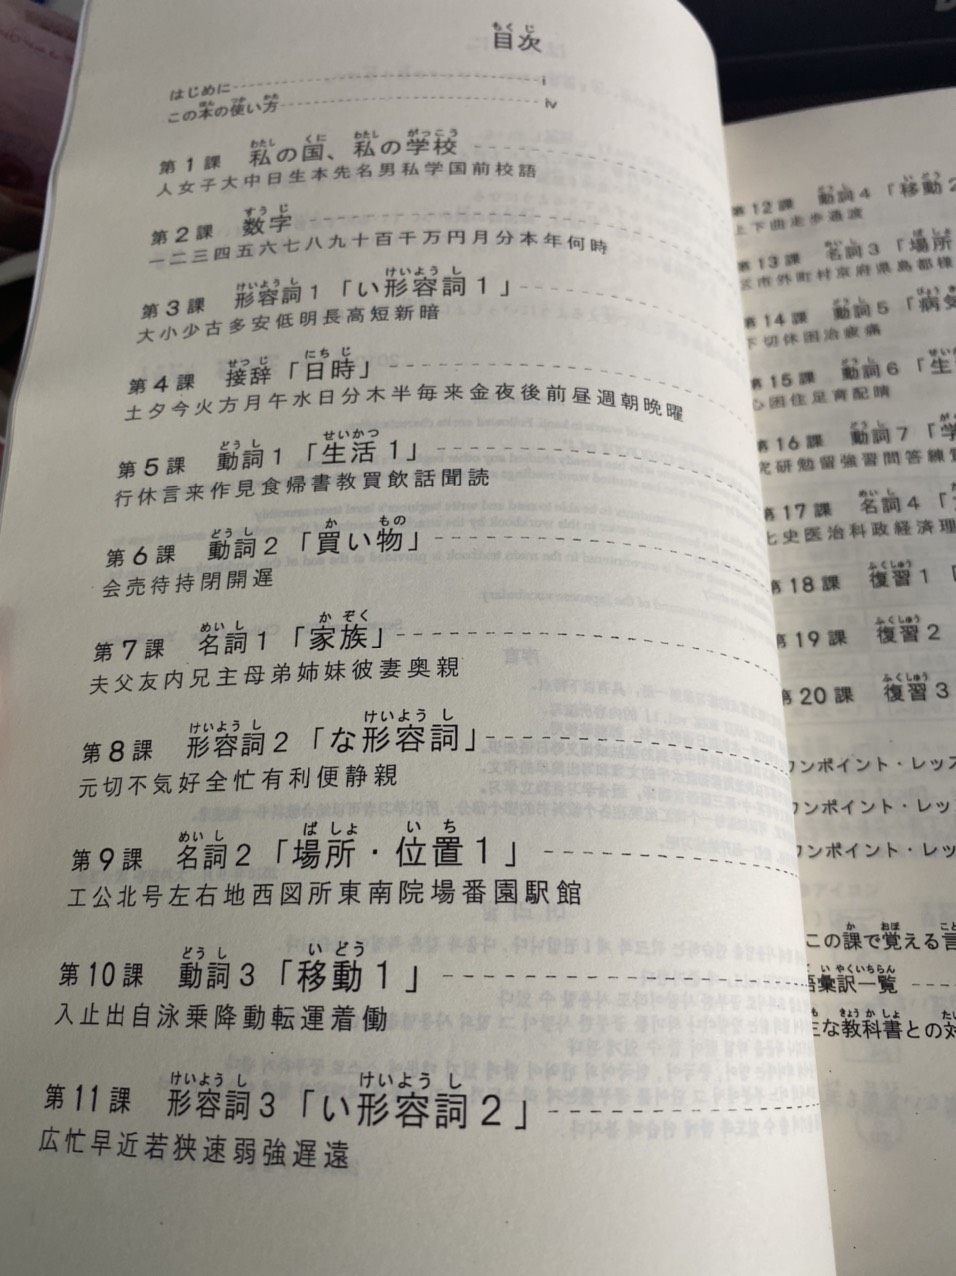 目次
はじめに i
この本の使い方 iv
第1課 私の国、私の学校
人女子大中日生本先名男私学国前校語
第2課 数字
一二三四五六七八九十百千万円月分本年何時
第3課 形容詞1「い形容詞1」
大小少古多安低明長高短新暗
第4課 接辞「日時」
土夕今火方月午水日分木半毎来金夜後前昼週朝晩曜
第5課 動詞1「生活1」
行休言来作見食帰書教買飲話聞読
第6課 動詞2「買い物」
会売待持閉開遅
第7課 名詞1「家族」
夫父友内兄主母弟姉妹彼妻奥親
第8課 形容詞2「な形容詞」
元切不気好全忙有利便静親
第9課 名詞2「場所・位置1」
工公北号左右地西図所東南院場番園駅館
第10課 動詞3「移動1」
入止出自泳乗降動転運着働
第11課 形容詞3「い形容詞2」
広忙早近若狭速弱強遅遠
第12課 動詞4「移動2
上下曲走歩過渡
第13課 名詞3「場所
区市外町村京府県島都様
第14課 動詞5「病気
下切休困治疲痛
第15課 動詞6「生
心困住足育配晴
第16課 動詞7「学
究研勉留強習問答練
第17課 名詞4「
化史医治科政経済理
第18課 復習1「
第19課 復習2
第20課 復習3
ワンポイント・レッス
ワンポイント・レッ
ワンポイント・レッ
この課で覚える言
語彙訳一覧
主な教科書との対